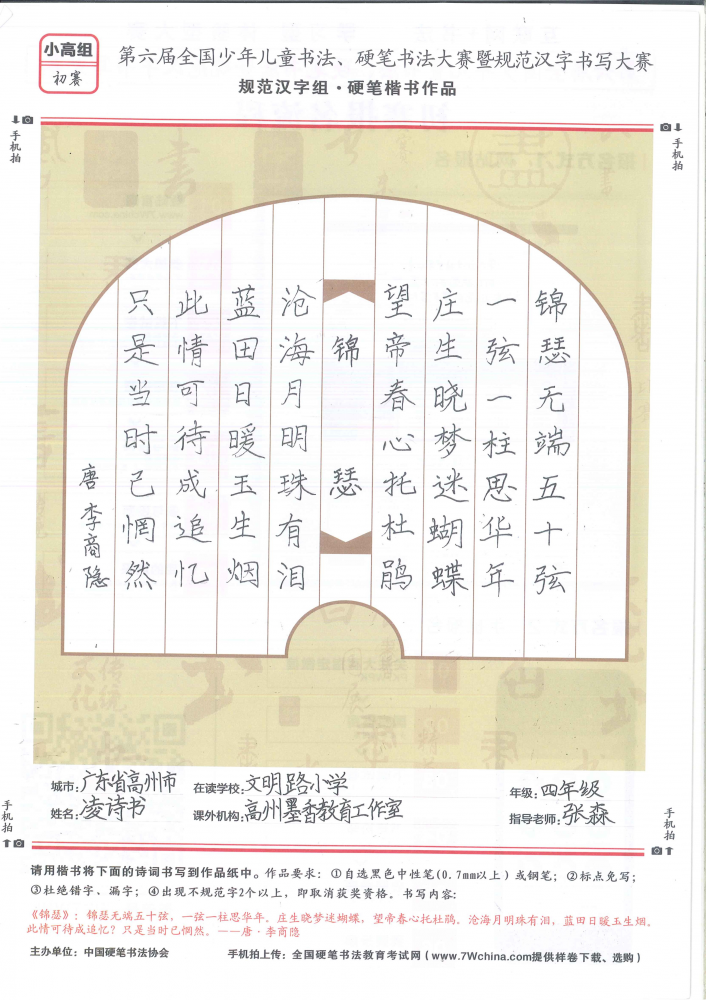 小高组
初赛
第六届全国少年儿童书法、硬笔书法大赛暨规范汉字书写大赛
规范汉字组·硬笔楷书作品
手机拍
手机拍
锦瑟无端五十弦
一弦一柱思华年
庄生晓梦迷蝴蝶
望帝春心托杜鹃
锦瑟
沧海月明珠有泪
蓝田日暖玉生烟
此情可待成追忆
只是当时已惘然
唐李商隐
城市:广东省高州市 在读学校:文明路小学 年级:四年级
姓名:凌诗书 课外机构:高州墨香教育工作室 指导老师:张淼
手机拍
手机拍
请用楷书将下面的诗词书写到作品纸中。作品要求:①自选黑色中性笔(0.7mm以上)或钢笔;②标点免写;
③杜绝错字、漏字;④出现不规范字2个以上,即取消获奖资格。书写内容:
《锦瑟》:锦瑟无端五十弦,一弦一柱思华年。庄生晓梦迷蝴蝶,望帝春心托杜鹃。沧海月明珠有泪,蓝田日暖玉生烟。
此情可待成追忆?只是当时已惘然。——唐·李商隐
主办单位:中国硬笔书法协会 手机拍上传:全国硬笔书法教育考试网(www.7Wchina.com提供样卷下载、选购)